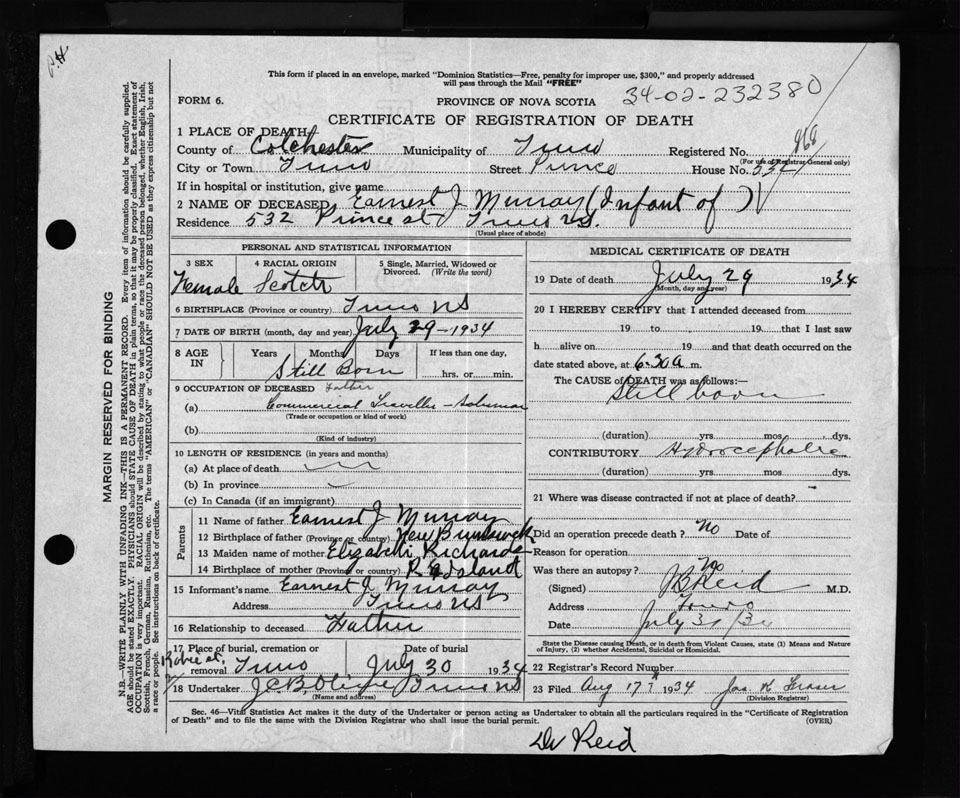 P.H
This form if placed in an envelope, marked "Dominion Statistics—Free, penalty for improper use, $300," and properly addressed
will pass through the Mail "FREE"
FORM 6.
PROVINCE OF NOVA SCOTIA
34-02-232380
CERTIFICATE OF REGISTRATION OF DEATH
1 PLACE OF DEATH
968
County of Colchester Municipality of Truro Registered No.
(For use of Registrar General only)
City or Town Truro Street Prince House No. 534
If in hospital or institution, give name
2 NAME OF DECEASED Earnest J Murray (Infant of)
Residence 532 Prince st Truro NS.
(Usual place of abode)
PERSONAL AND STATISTICAL INFORMATION
3 SEX 4 RACIAL ORIGIN 5 Single, Married, Widowed or
Divorced. (Write the word)
Female Scotch
6 BIRTHPLACE (Province or country) Truro NS
7 DATE OF BIRTH (month, day and year) July 29-1934
8 AGE IN Years Months Days If less than one day,
Still Born hrs. or min.
9 OCCUPATION OF DECEASED Father
(a) Commercial Traveller - Salesman
(Trade or occupation or kind of work)
(b)
(Kind of industry)
10 LENGTH OF RESIDENCE (in years and months)
(a) At place of death
(b) In province
(c) In Canada (if an immigrant)
Parents
11 Name of father Earnest J Murray
12 Birthplace of father (Province or country) New Brunswick
13 Maiden name of mother Elizabeth Richards
14 Birthplace of mother (Province or country) P Ed Island
15 Informant's name Earnest J. Murray
Address Truro NS
16 Relationship to deceased Father
17 Place of burial, cremation or Date of burial
removal Robie st, Truro July 30 1934
18 Undertaker Truro NS
(Name and address)
MEDICAL CERTIFICATE OF DEATH
19 Date of death July 29 1934
(Month, day and year)
20 I HEREBY CERTIFY that I attended deceased from
19 to 19 that I last saw
h alive on 19 and that death occurred on the
date stated above, at 6.30a m.
The CAUSE of DEATH was as follows:—
Still born
(duration) yrs. mos. dys.
CONTRIBUTORY Hydrocephalic
(duration) yrs. mos. dys.
21 Where was disease contracted if not at place of death?
Did an operation precede death? No Date of
Reason for operation
Was there an autopsy? No
(Signed) Reid M.D.
Address Truro
Date July 31/34
State the Disease causing Death, or in death from Violent Causes, state (1) Means and Nature
of Injury, (2) whether Accidental, Suicidal or Homicidal.
22 Registrar's Record Number
23 Filed Aug 17 1934 Jas K Fraser
(Division Registrar)
Sec. 46—Vital Statistics Act makes it the duty of the Undertaker or person acting as Undertaker to obtain all the particulars required in the "Certificate of Registration
of Death" and to file the same with the Division Registrar who shall issue the burial permit. (OVER)
Dr Reid
MARGIN RESERVED FOR BINDING
N.B.—WRITE PLAINLY WITH UNFADING INK—THIS IS A PERMANENT RECORD. Every item of information should be carefully supplied.
AGE should be stated EXACTLY. PHYSICIANS should STATE CAUSE OF DEATH in plain terms, so that it may be properly classified. Exact statement of
OCCUPATION is very important. RACIAL ORIGIN will be described by stating to what people or race the deceased person belonged, whether English, Irish,
Scottish, French, German, Russian, Ruthenian, etc. The terms "AMERICAN" or "CANADIAN" SHOULD NOT BE USED as they express citizenship but not
a race or people. See instructions on back of certificate.